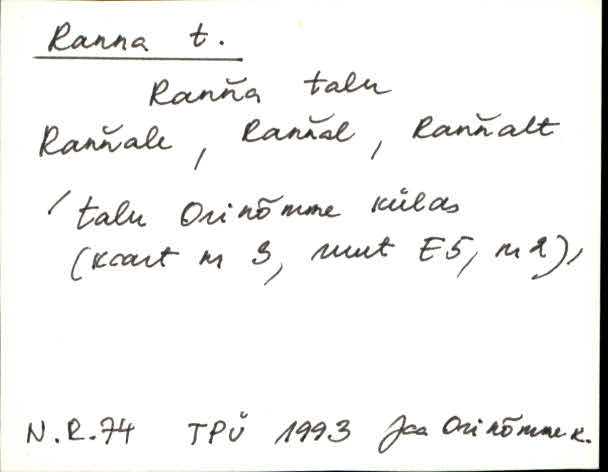 Ranna t.
Rańńa talu
Rańńale, Rańńal, Rańńalt
/ talu Orinõmme külas
(kaart nr 3, ruut E5, nr 2)/
N.R.74 TPÜ 1993 Jaa Orinõmme k.